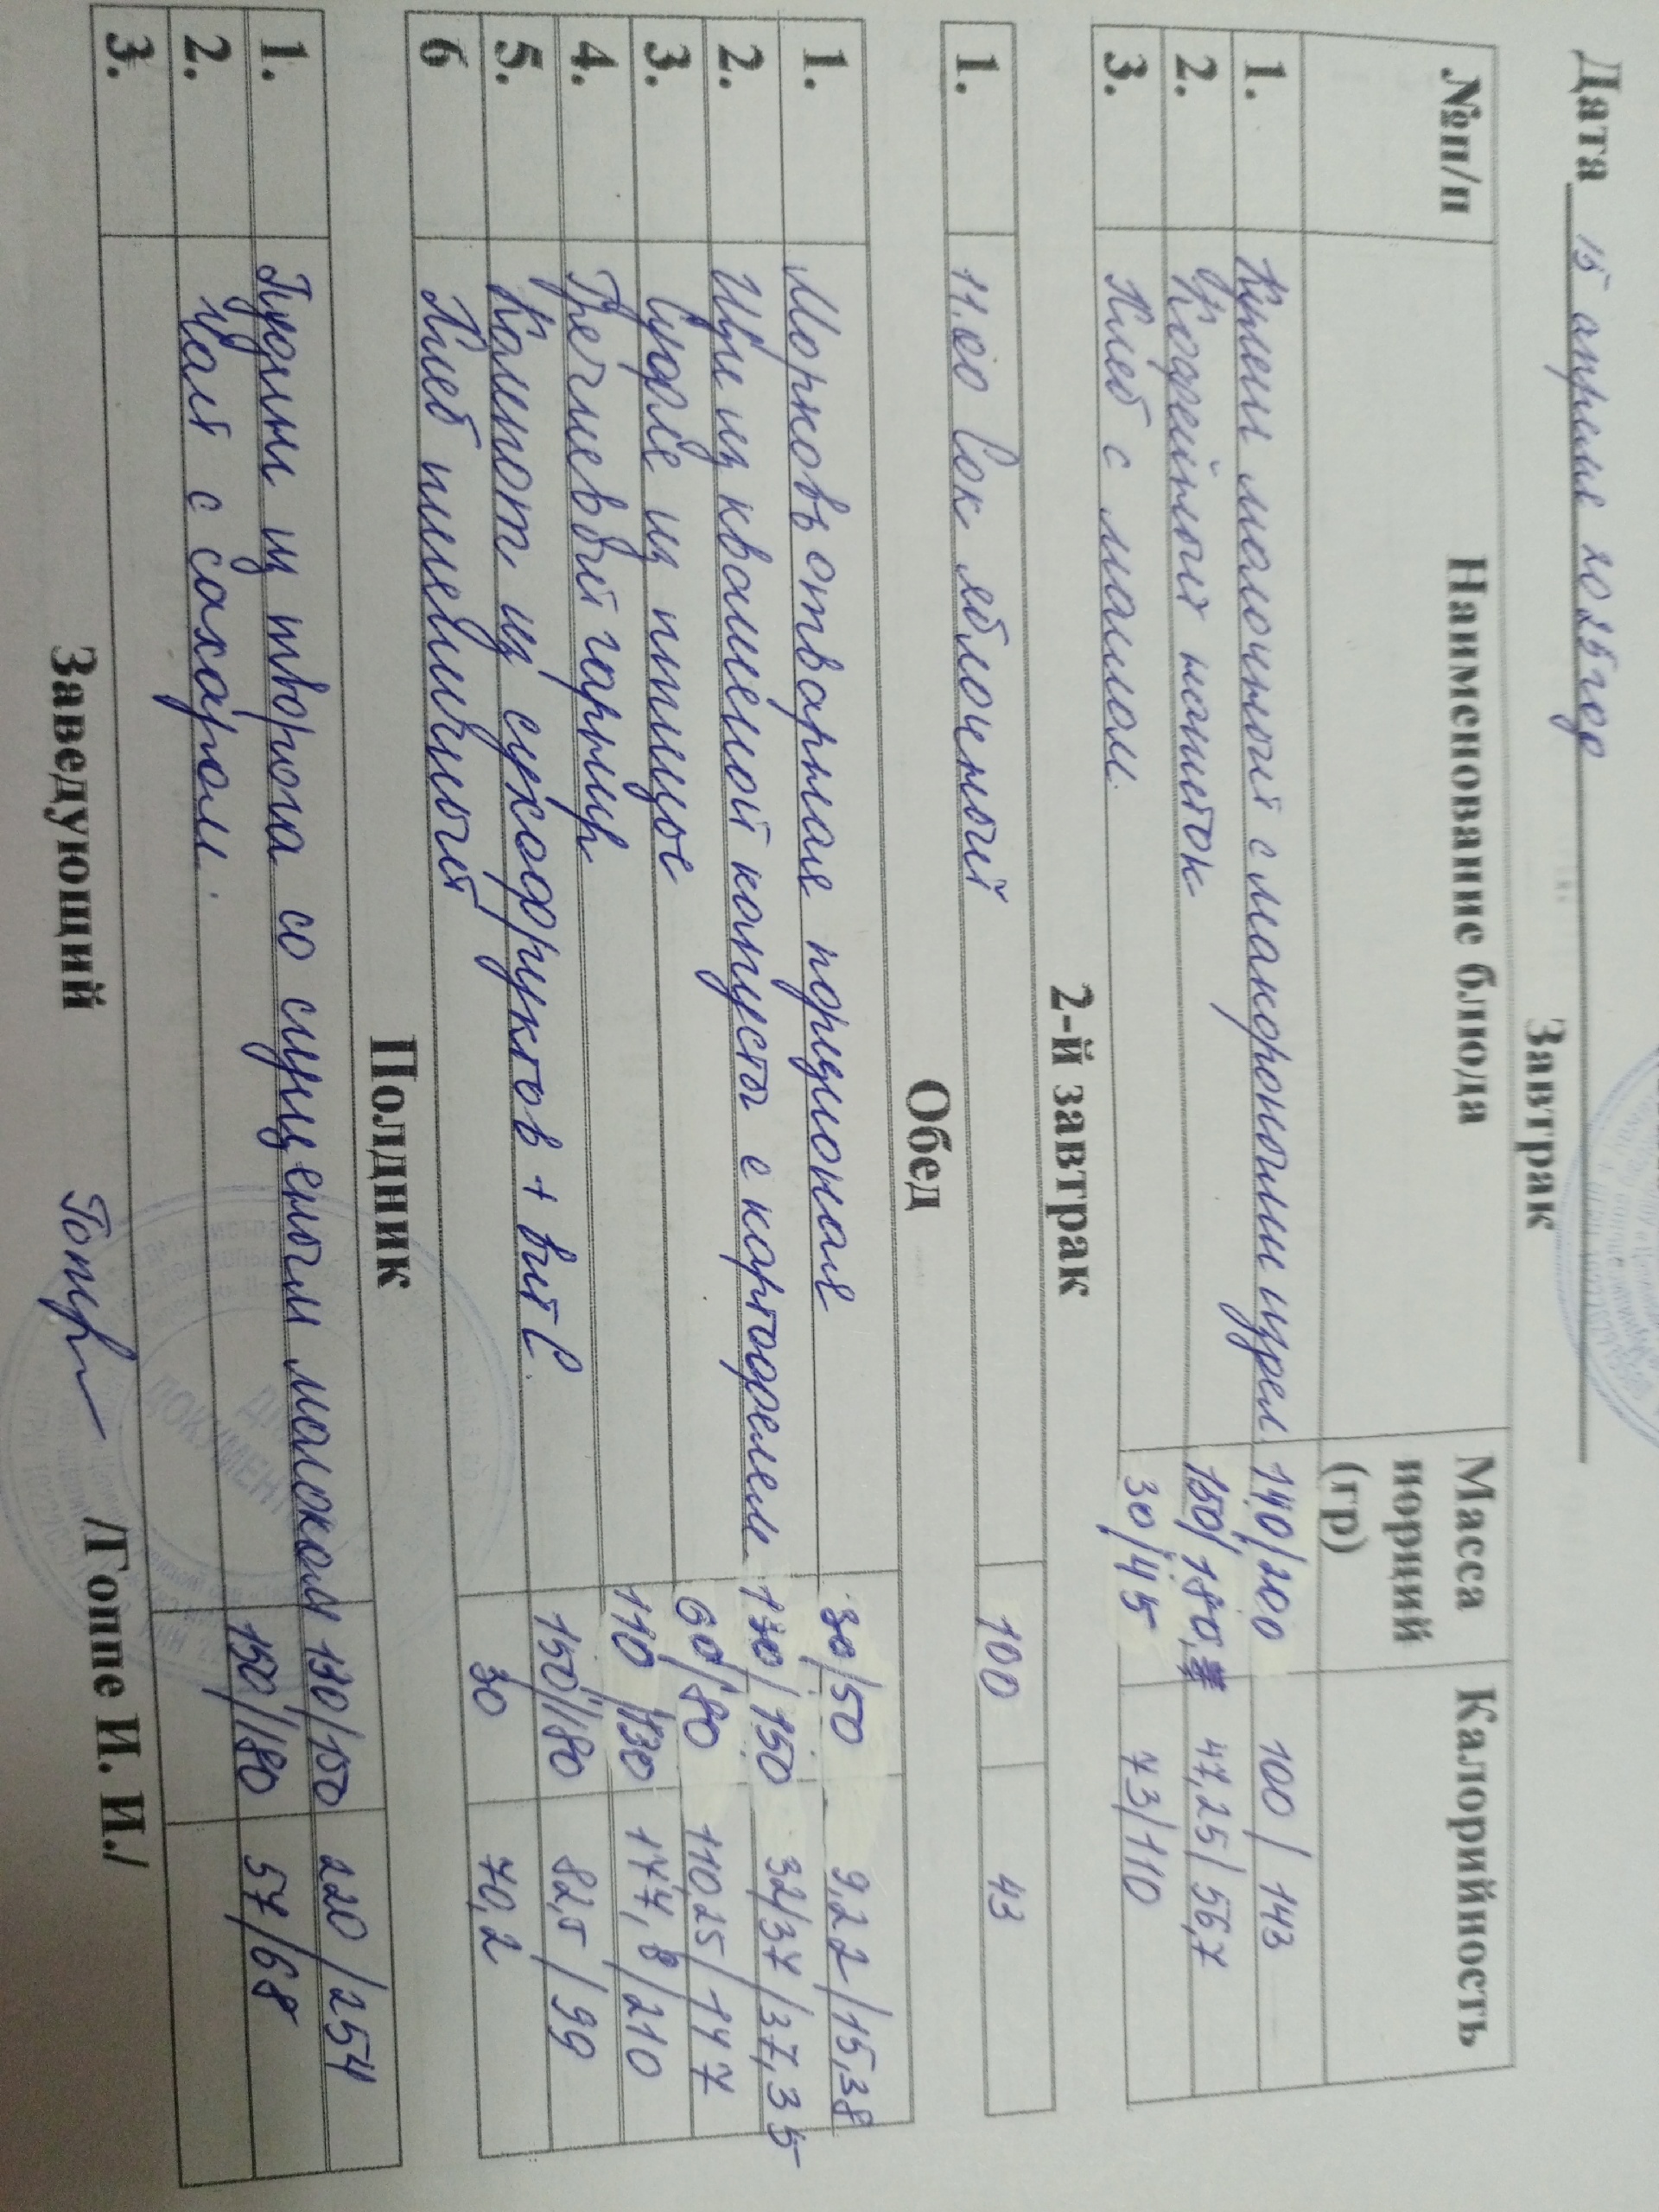 Дата 15 апреля 2025 год
Завтрак
№п/п Наименование блюда Масса порций (гр) Калорийность
1. Супы молочный с макаронными издел. 140/200 100/143
2. Кофейный напиток 150/180, 47,25/56,7
3. Хлеб с маслом. 30/45 73/110
2-й завтрак
1. 11.00 Сок яблочный 100 43
Обед
1. Морковь отварная порционная 30/50 9,22/15,38
2. Щи из квашеной капусты с картофелем 130/150 32/37/37,35
3. Суфле из птицы 60/80 110,25/147
4. Гречневый гарнир 110/130 177,8/210
5. Компот из сухофруктов + вит С. 150/180 82,5/99
6 Хлеб пшеничный 30 70,2
Полдник
1. Пудинг из творога со сгущеным молоком 130/150 220/254
2. Чай с сахаром. 150/180 57/68
3.
Заведующий /Гоппе И. И./
ДЛЯ
ДОКУМЕНТ